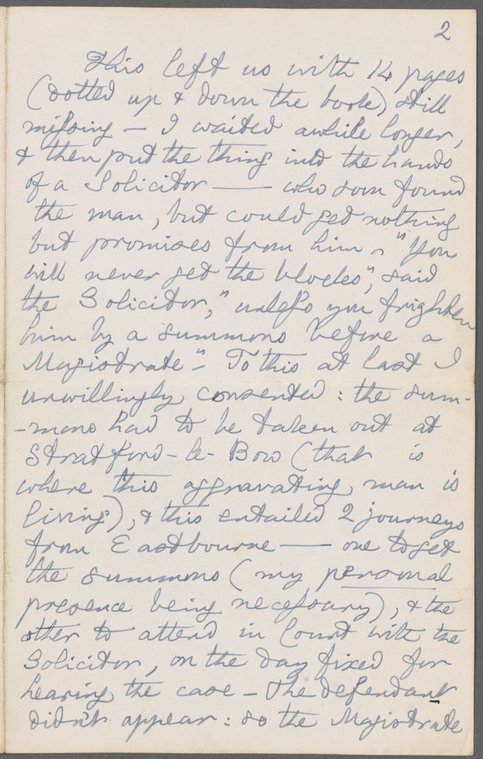 2
This left us with 14 pages
(dotted up & down the book) still
missing — I waited awhile longer,
& then put the thing into the hands
of a Solicitor —— who soon found
the man, but could get nothing
but promises from him – "You
will never get the blocks", said
the Solicitor, "unless you frighten
him by a summons before a
Magistrate" – To this at last I
unwillingly consented: the sum-
-mons had to be taken out at
Stratford-le-Bow (that is
where this aggravating man is
living), & this entailed 2 journeys
from Eastbourne —— one to get
the summons (my personal
presence being necessary), & the
other to attend in Court with the
Solicitor, on the day fixed for
hearing the case – The defendant
didn't appear: so the Magistrate